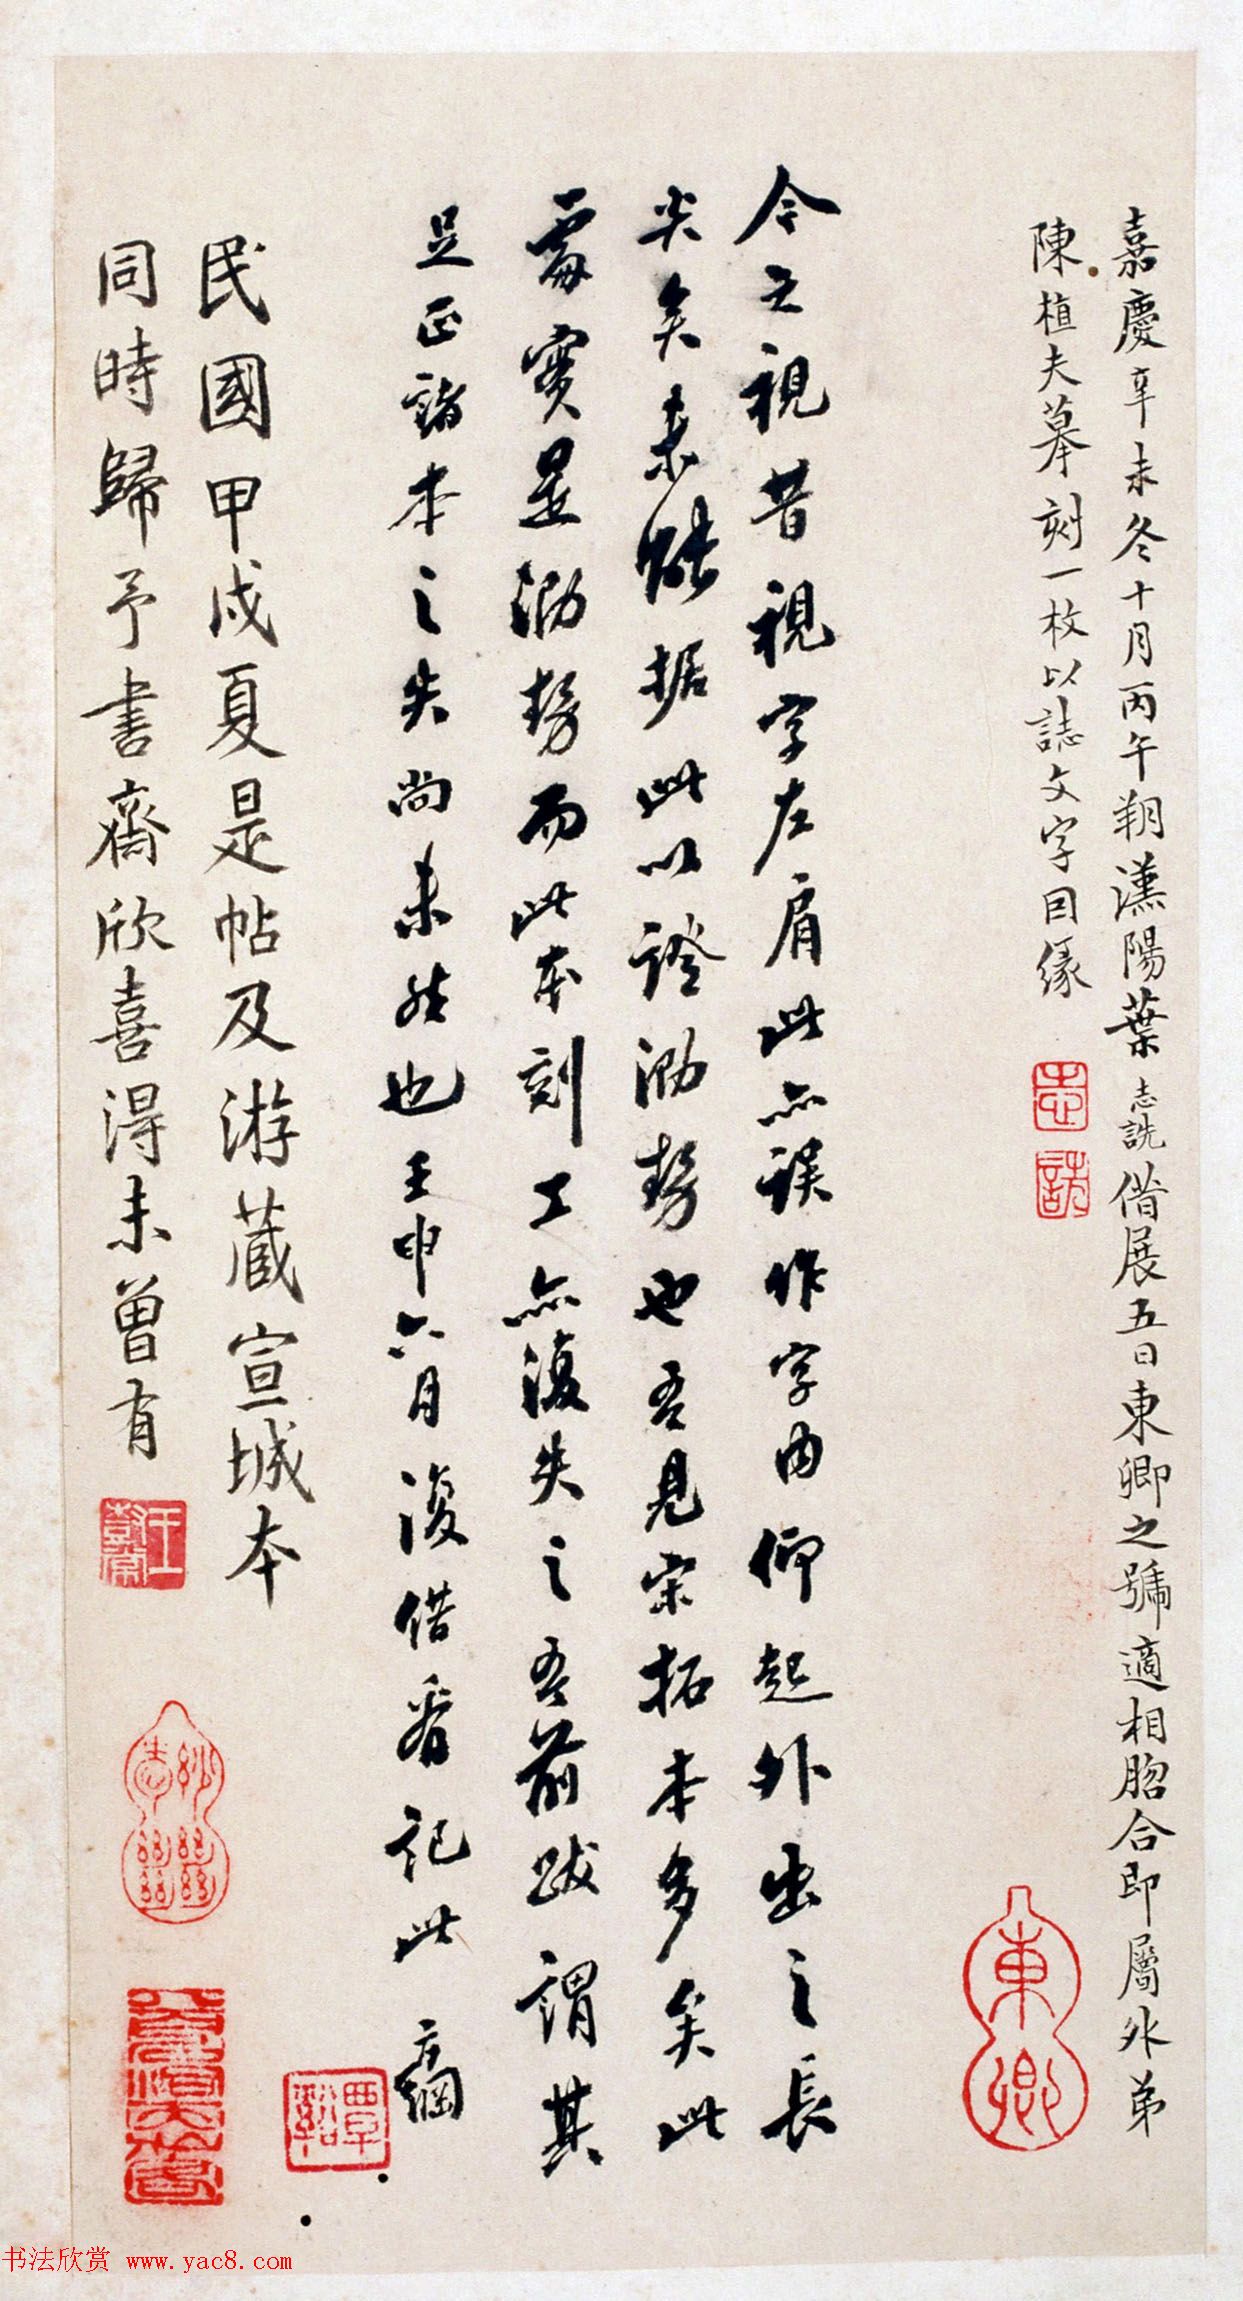 嘉慶辛未冬十月丙午朔漢陽葉志詵借展五日東卿之號適相脗合即屬外弟
陳植夫摹刻一枚以誌文字因緣
志詵
東卿
今之視昔視字左肩此亦誤作字內仰起外出之長
尖矣未能据此以證泐勢也吾見宋拓本多矣此
處實是泐勢而此本刻工亦復失之吾前跋謂其
足正諸本之失尚未然也壬申六月復借看記此 方綱
覃谿
民國甲戌夏是帖及游藏宣城本
同時歸予書齋欣喜得未曾有
书法欣赏 www.yac8.com